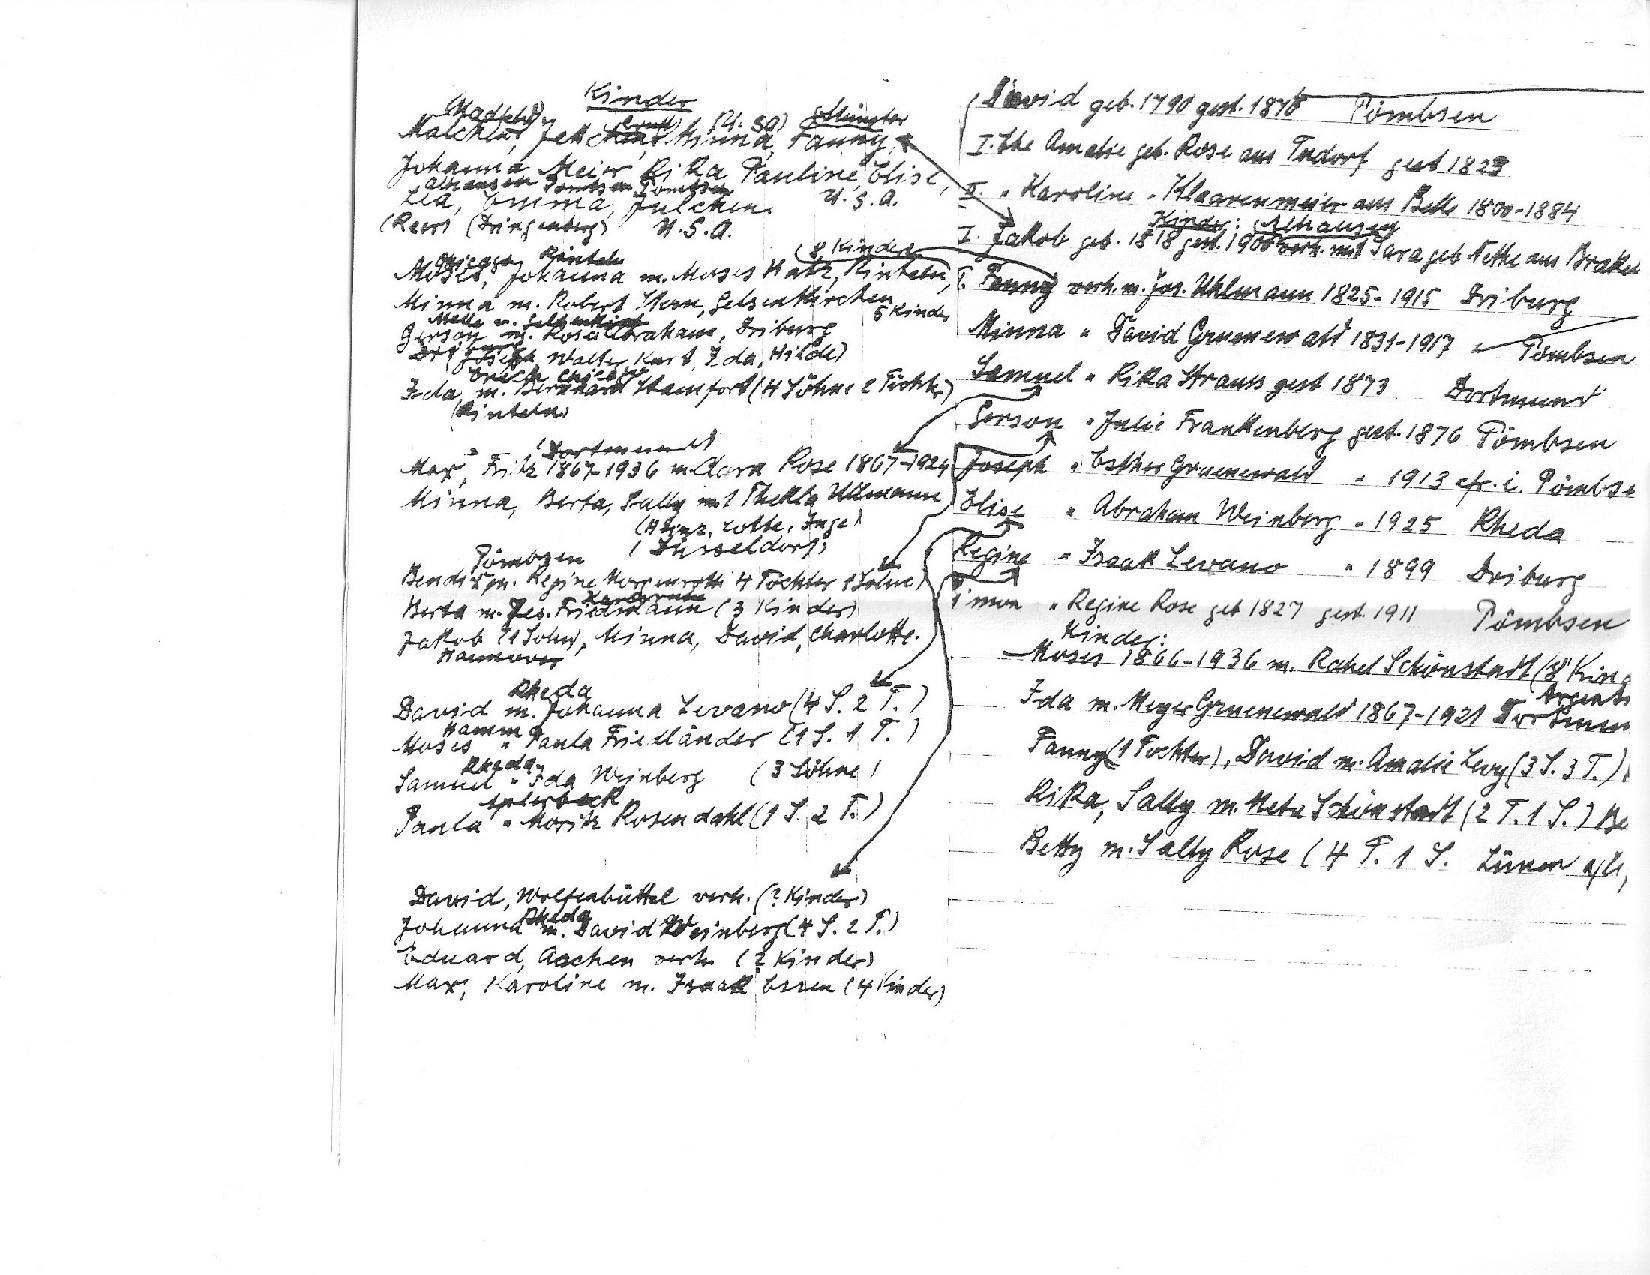 Kinder
(U.S.A) Münster
Malchen, Jettchen, Minna, Fanny,
Johanna, Meier, Rika, Pauline, Elise,
Alhausen Pömbsen Pömbsen
Lea, Emma, Julchen. U.S.A.
(Dringenberg) U.S.A.
(8 Kinder)
Chicago Rinteln
Moses, Johanna m. Moses Katz, Rinteln,
Minna m. Robert Stern, Gelsenkirchen
5 Kinder
Gerson m. Rosa Abraham, Driburg
Joseph Walter Kurt, Ida, Hilde)
Ida m. Bernhard Hamfort (4 Söhne 2 Töchter)
(Rinteln)
(Dortmund)
Max, Fritz 1867-1936 m. Clara Rose 1867-1924
Minna, Berta, Sally m. Thekla Ullmann
(Heinz, Lotte, Inge)
(Düsseldorf)
Pömbsen
Bendix m. Regine Morgenroth 4 Töchter 1 Sohn)
Berta m. Jos. Friedmann (3 Kinder)
Jakob (1 Sohn), Minna, David, Charlotte.
Hannover
Rheda
David m. Johanna Levano (4 S. 2 T.)
Hamm
Moses " Paula Friedländer (1 S. 1 T.)
Rheda
Samuel " Ida Weinberg (3 Söhne)
Aplerbeck
Paula " Moritz Rosendahl (1 S. 2 T.)
David, Wolfenbüttel verh. (? Kinder)
Rheda
Johanna m. David Weinberg (4 S. 2 T.)
Eduard, Aachen verh. (2 Kinder)
Max, Karoline m. Isaak Essen (4 Kinder)
David geb. 1790 gest. 1878 Pömbsen
I. Ehe Amalie geb. Rose aus Tudorf gest 1823
II. " Karoline " Klaarenmeier aus Belle 1800-1884
Kinder: Alhausen
I. Jakob geb. 1818 gest. 1900 verh. mit Sara geb Nethe aus Brakel
I. Fanny verh. m. Jos. Uhlmann 1825-1915 Driburg
Minna " David Gruenewald 1831-1917 " Pömbsen
Samuel " Rika Strauss gest 1873 Dortmund
Gerson " Julie Frankenberg gest. 1876 Pömbsen
Joseph " Esther Gruenewald " 1913 fr. i. Pömbse
Elise " Abraham Weinberg " 1925 Rheda
Regine " Isaak Levano " 1899 Driburg
Simon " Regine Rose geb 1827 gest. 1911 Pömbsen
Kinder:
Moses 1866-1936 m. Rahel Schönstadt (8 Kind
Ida m. Meyer Gruenewald 1867-1921
Fanny (1 Tochter), David m. Amalie Levy (3 S. 3 T.)
Rika, Sally m. Meta Schönstadt (2 T. 1 S.) Be
Betty m. Sally Rose (4 T. 1 S. Lünen